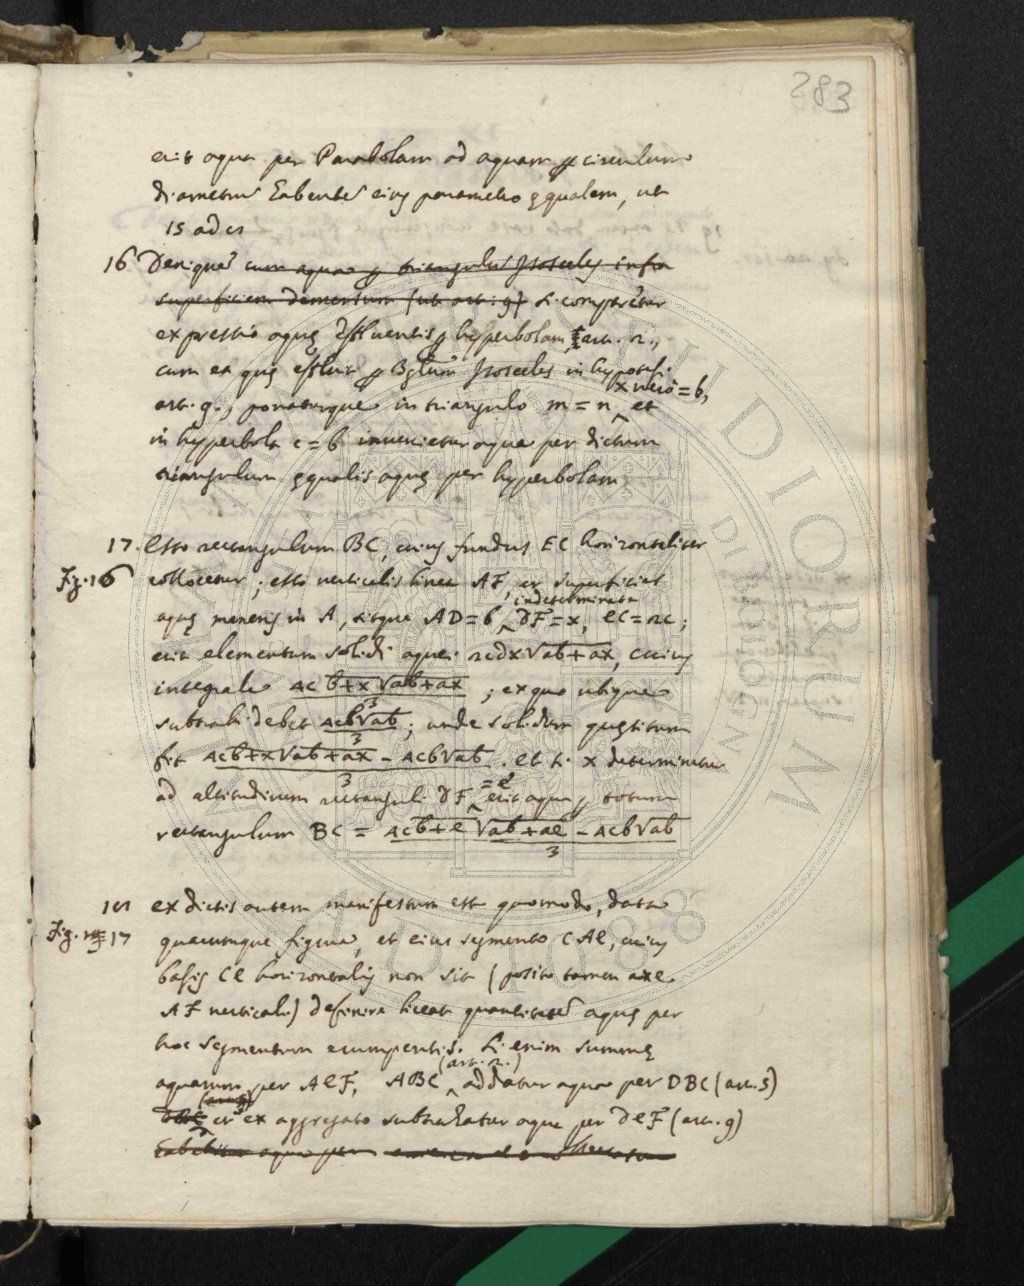 283
erit aqua per Parabolam ad aquam p circulum
diametrū habentē eius parametro ęqualem, ut
15 ad
16 Deniquē cum aqua p triangulū Isosceles infra
superficiem demersum (ut art. 9) si comparetur
expressio aquę effluentis p hyperbolam, art.
cum ea quę effluit p 3glum Isosceles in hypotesi
art. 9., ponaturque in triangulo m = n x verò = b, et
in hyperbola c = b invenietur aqua per dictum
triangulum ęqualis aquę per hyperbolam
17. Esto rectangulum BC, cuius fundus EC horizontaliter
Fig. 16 collocetur; esto verticalis linea AF, et superficies
aquę manens in A, sitque AD = b, indeterminata DF = x, EC = 2c;
erit elementum solidi aquei 2cdx√ab+ax, cuius
integrale 4c b+x √ab+ax / 3; ex quo ubique
subtrahi debet 4cb√ab / 3; unde solidum quęsitum
fit 4c b+x √ab+ax − 4cb√ab / 3. et si x determinetur
ad altitudinem rectanguli DF = e erit aqua p totum
rectangulum BC = 4c b+e √ab+ae − 4cb√ab / 3
18 ex dictis autem manifestum est quomodo, data
Fig. 17 quacumque figura, et eius segmento CAE, cuius
basis CE horizontalis non sit (posito tamen axe
AF verticali) definire liceat quantitatē aquę per
hoc segmentum erumpentis. Si enim summę
aquarum per AEF, ABC (art. 2.) addatur aqua per DBC (art. 5)
et ex aggregato subtrahatur aqua per DEF (art. 9)
habebitur aqua per